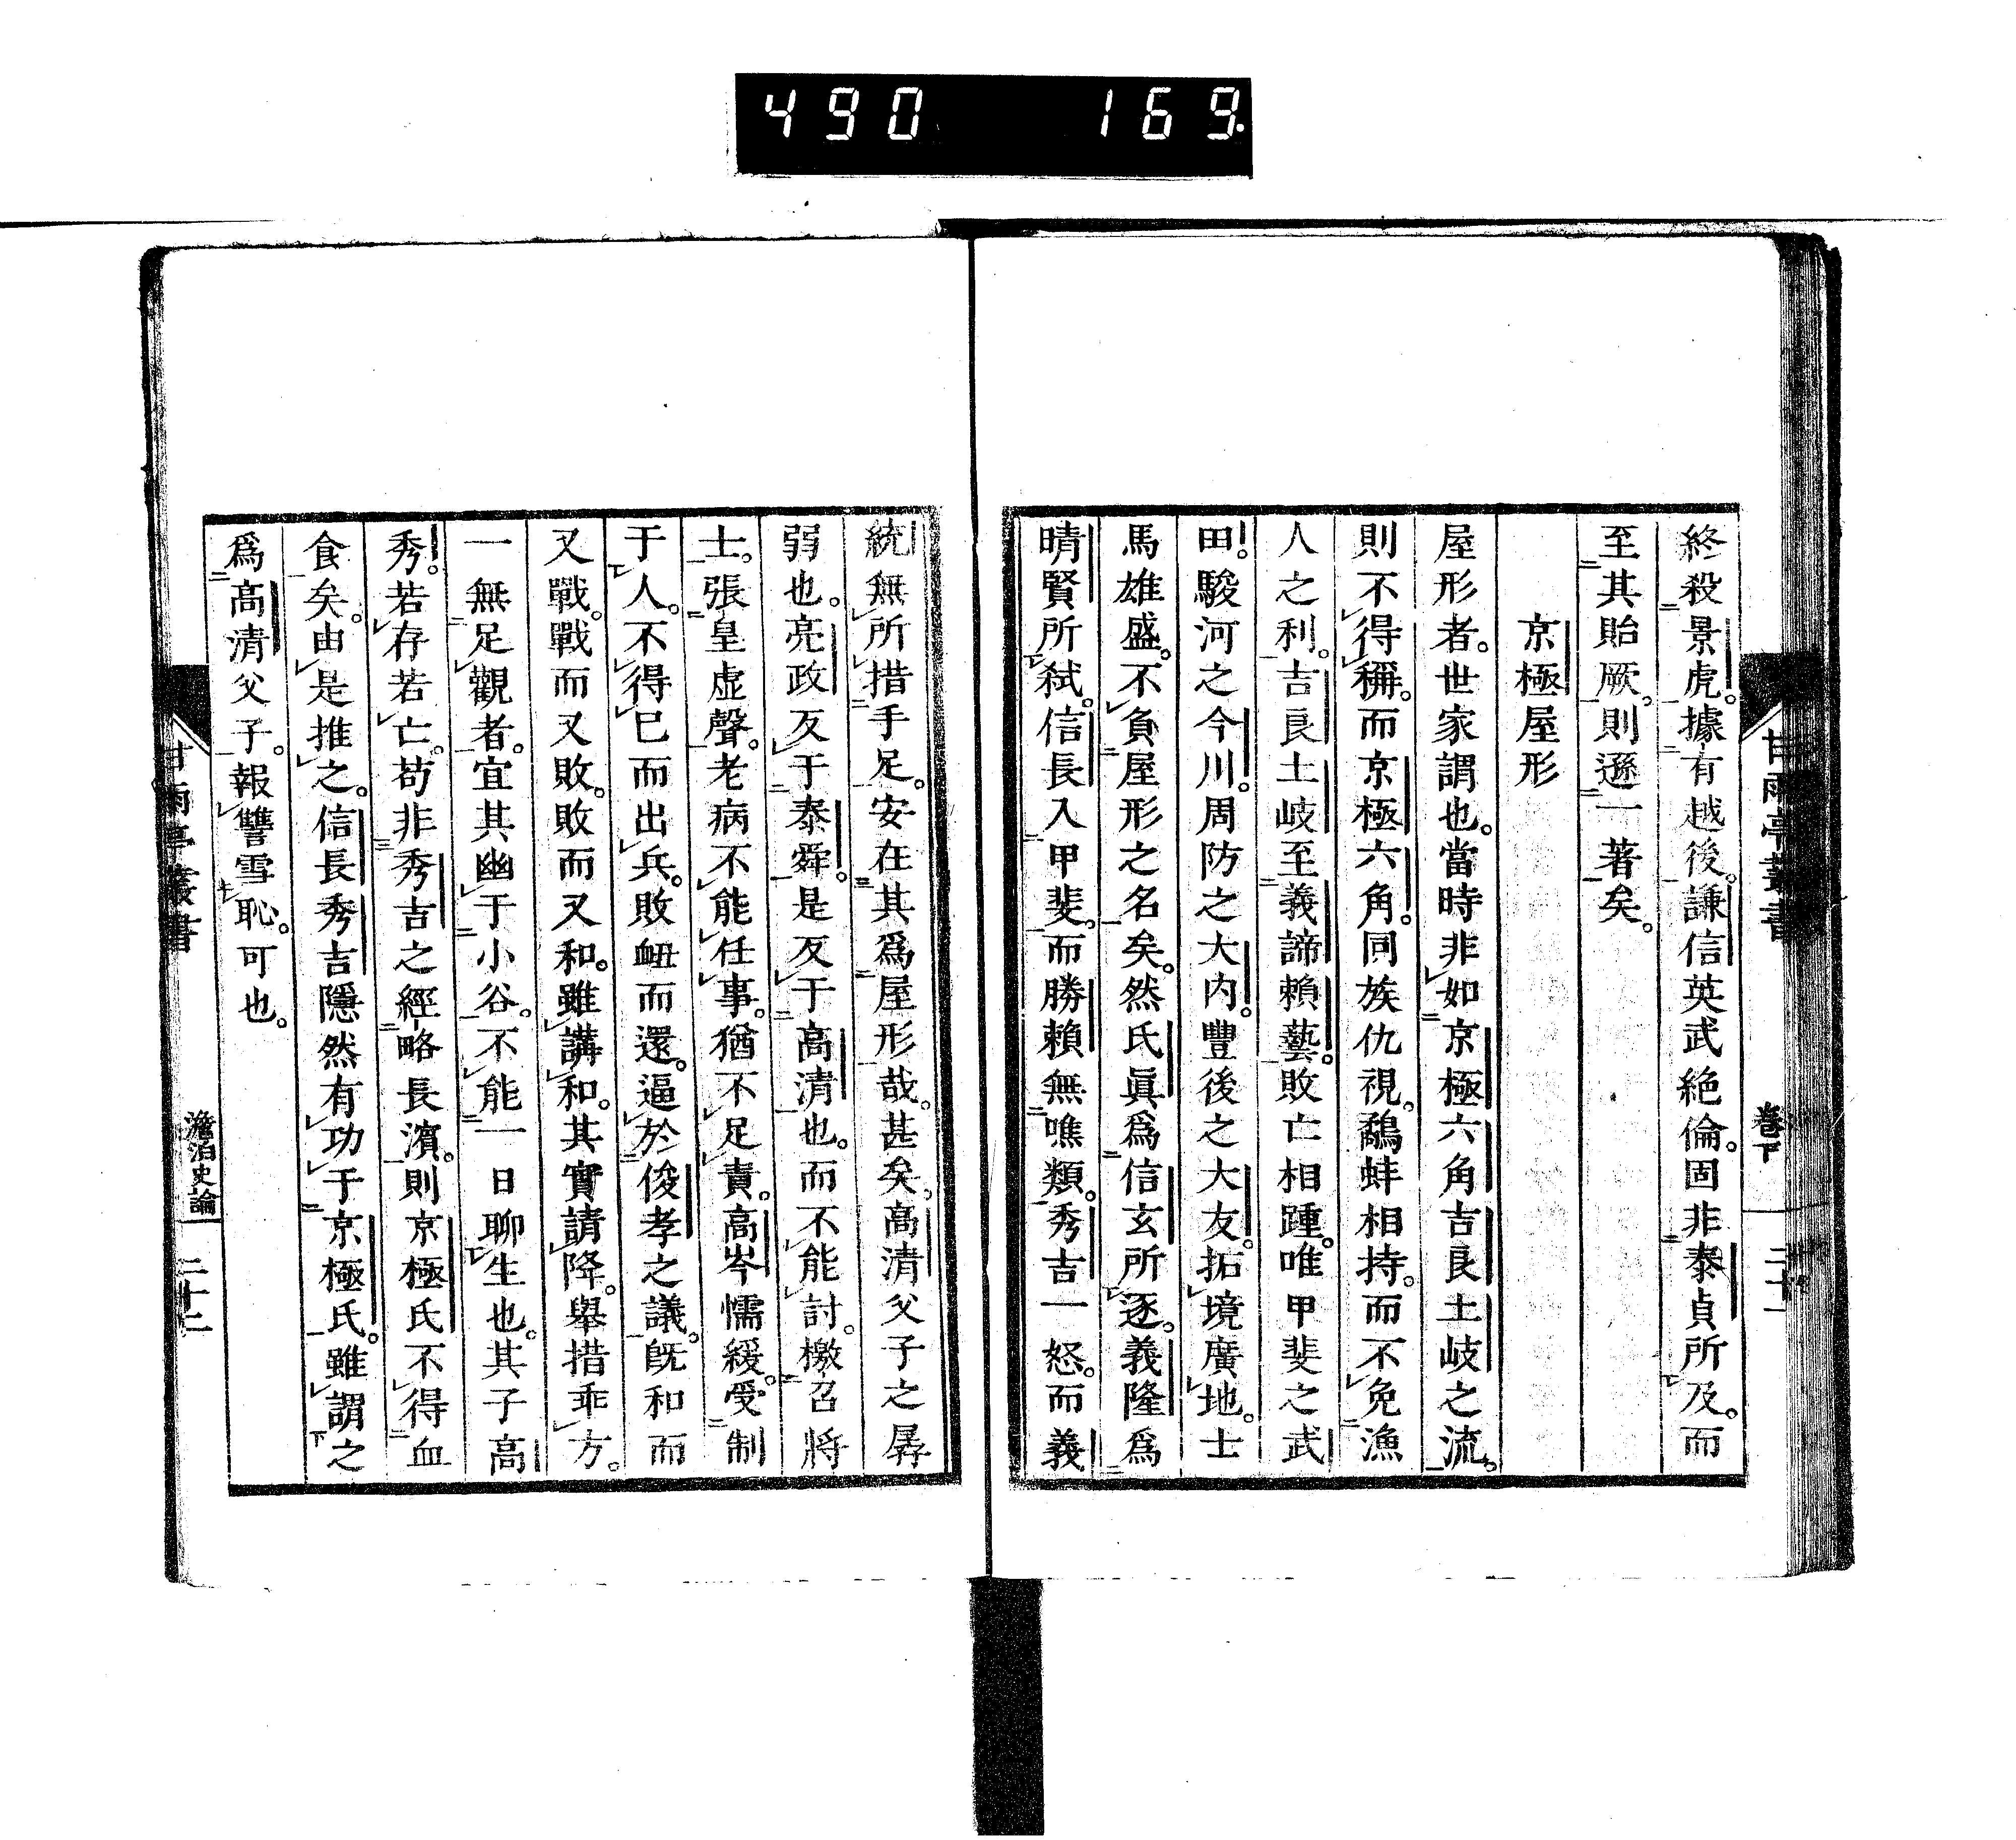 490 169.
甘雨亭叢書 卷下 二十一
終殺景虎。據有越後。謙信英武絶倫。固非泰貞所及。而
至其貽厥。則遜一著矣。
京極屋形
屋形者。世家謂也。當時非如京極六角吉良土岐之流。
則不得稱。而京極六角。同族仇視。鷸蚌相持。而不免漁
人之利。吉良土岐至義諦賴藝。敗亡相踵。唯甲斐之武
田。駿河之今川。周防之大内。豐後之大友。拓境廣地。士
馬雄盛。不負屋形之名矣。然氏眞爲信玄所逐。義隆爲
晴賢所弑。信長入甲斐。而勝賴無噍類。秀吉一怒。而義
統無所措手足。安在其爲屋形哉。甚矣。高清父子之孱
弱也。亮政叛于泰舜。是叛于高清也。而不能討。檄召將
士。張皇虛聲。老病不能任事。猶不足責。高岑懦緩。受制
于人。不得已而出兵。敗衂而還。逼於俊孝之議。既和而
又戰。戰而又敗。敗而又和。雖講和。其實請降。舉措乖方。
一無足觀者。宜其幽于小谷。不能一日聊生也。其子高
秀。若存若亡。苟非秀吉之經略長濱。則京極氏不得血
食矣。由是推之。信長秀吉隱然有功于京極氏。雖謂之
爲高清父子。報讐雪恥。可也。
甘雨亭叢書 澹泊史論 二十二